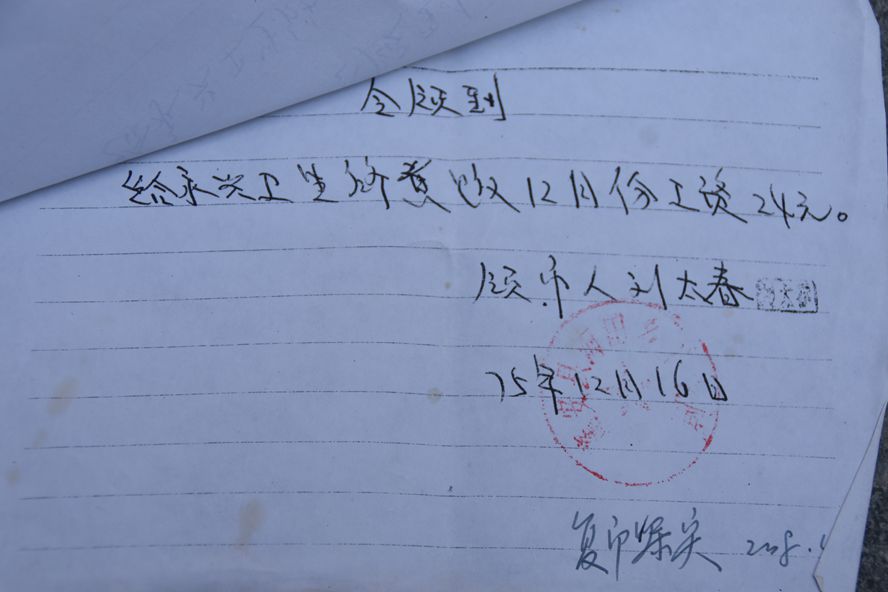 今领到
给永兴卫生所煮饭12月份工资24元。
领币人刘太春
75年12月16日
复印属实 2008.